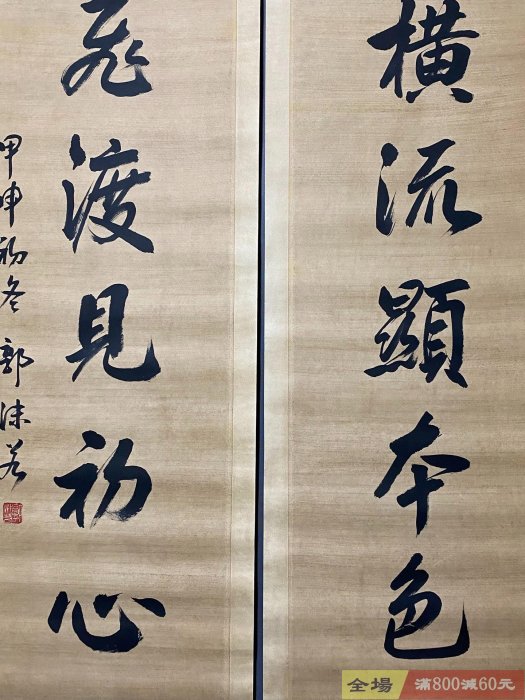 橫流顯本色
飛渡見初心
甲申初冬 郭沫若
全場 滿800減60元